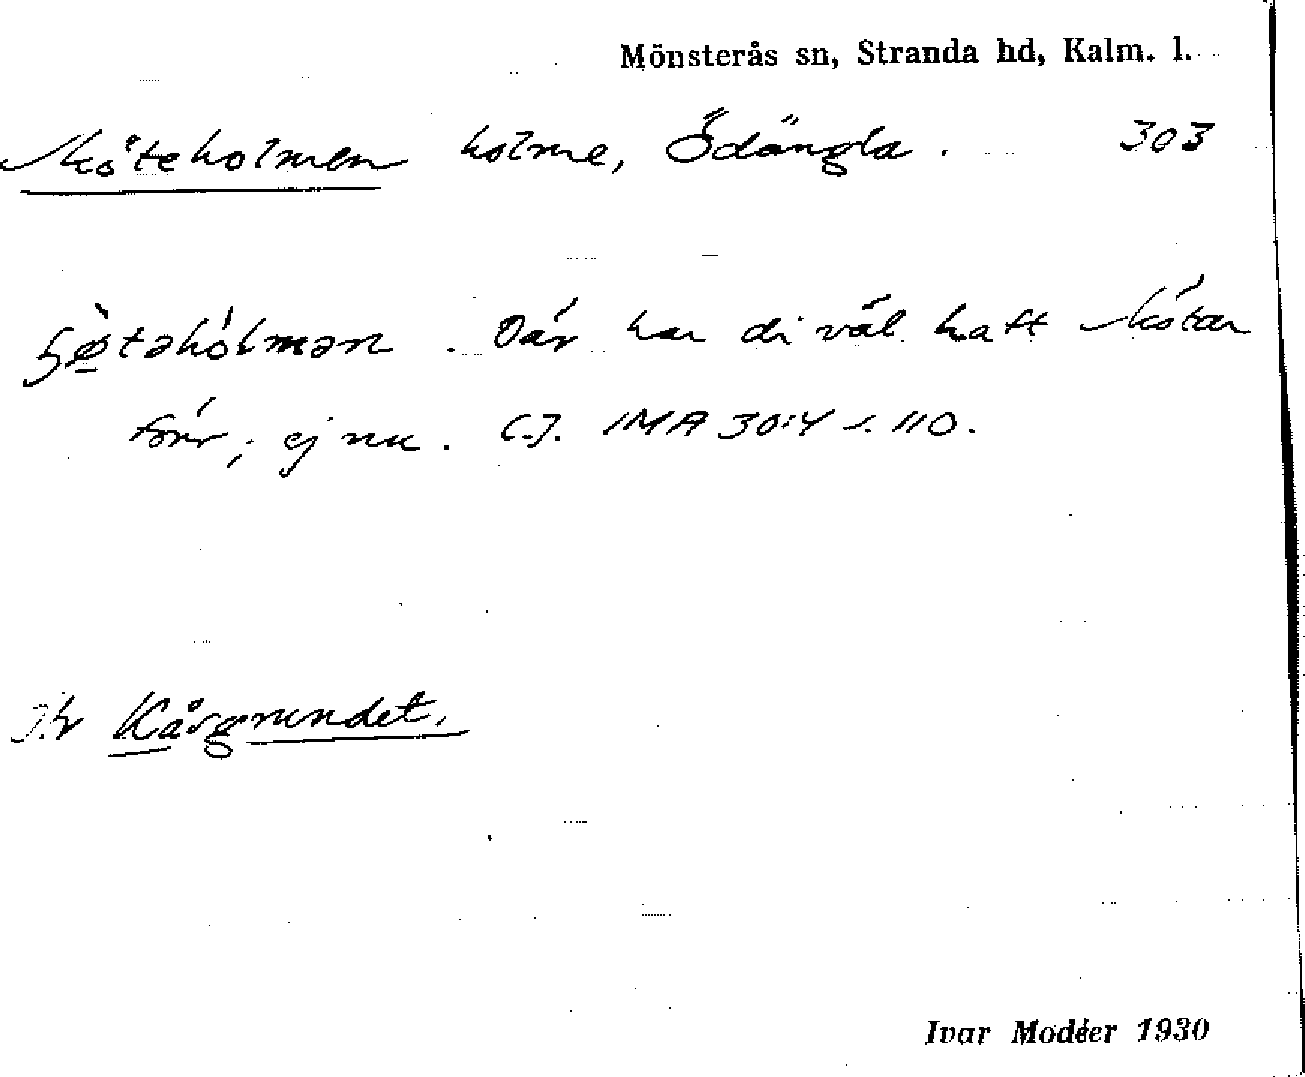 Mönsterås sn, Stranda hd, Kalm. l.
Sköteholmen holme, Ödängla. 303
ɧø̀təhólmən. Där har di väl haft skötar
förr; ej nu. C.J. IMA 30:4 s. 110.
Jfr Kårgrundet.
Ivar Modéer 1930